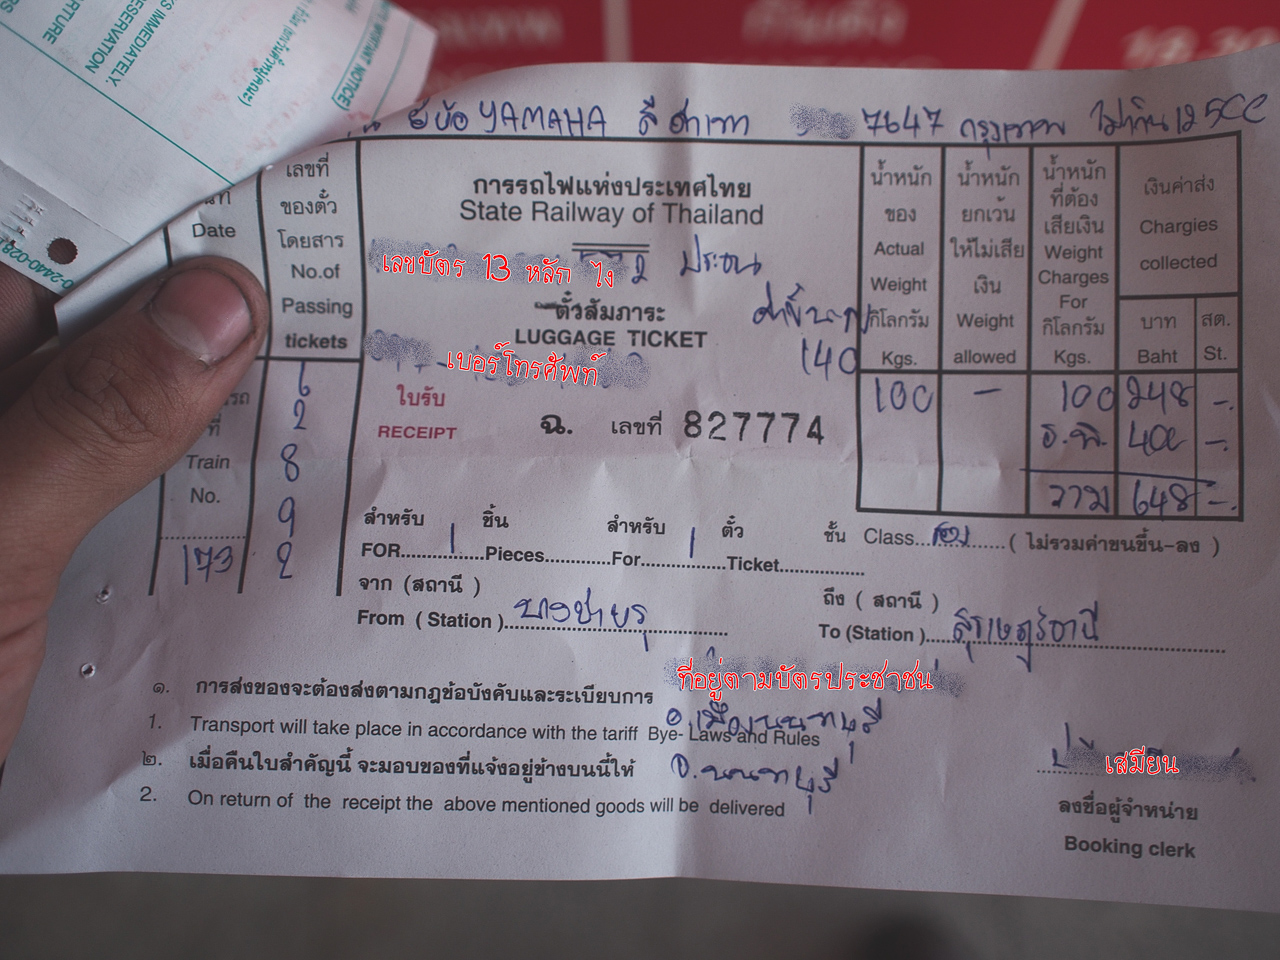 S IMMEDIATELY.
RESERVATION
RTURE
NOTICE)
ยี่ห้อ YAMAHA สี ดำเทา 7647 กรุงเทพฯ ไม่เกิน 125CC
Date
เลขที่
ของตั๋ว
โดยสาร
No.of
Passing
tickets
การรถไฟแห่งประเทศไทย
State Railway of Thailand
เลขบัตร 13 หลัก ไง
ตั๋วสัมภาระ
LUGGAGE TICKET
เบอร์โทรศัพท์
140
ใบรับ
RECEIPT
ฉ. เลขที่ 827774
น้ำหนัก
ของ
Actual
Weight
กิโลกรัม
Kgs.
น้ำหนัก
ยกเว้น
ให้ไม่เสีย
เงิน
Weight
allowed
น้ำหนัก
ที่ต้อง
เสียเงิน
Weight
Charges
For
กิโลกรัม
Kgs.
เงินค่าส่ง
Chargies
collected
บาท
Baht
สต.
St.
100 – 100 248 –.
ธ.พ. 400 –.
รวม 648 –.
Train
No.
173
6
2
8
9
2
สำหรับ 1 ชิ้น สำหรับ 1 ตั๋ว ชั้น
FOR Pieces For Ticket Class สอง ( ไม่รวมค่าขนขึ้น-ลง )
จาก (สถานี ) ถึง ( สถานี )
From ( Station ) To (Station ) สุราษฎร์ธานี
๑. การส่งของจะต้องส่งตามกฎข้อบังคับและระเบียบการ
ที่อยู่ตามบัตรประชาชน
1. Transport will take place in accordance with the tariff Bye- Laws and Rules
อ.เมืองนนทบุรี
๒. เมื่อคืนใบสำคัญนี้ จะมอบของที่แจ้งอยู่ข้างบนนี้ให้
จ.นนทบุรี
2. On return of the receipt the above mentioned goods will be delivered
เสมียน
ลงชื่อผู้จำหน่าย
Booking clerk